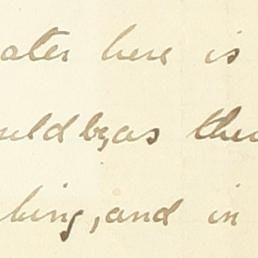 ater here is
uld be, as the
bing, and in